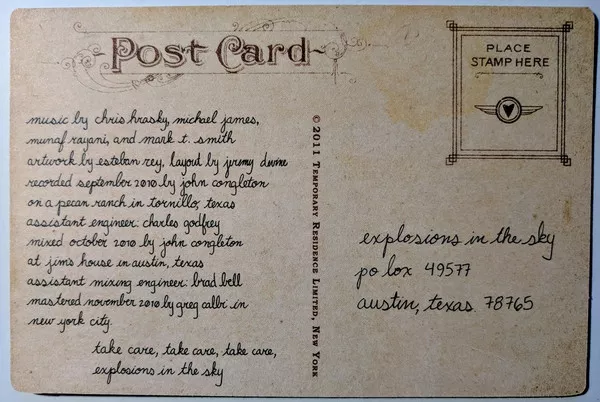 Post Card
PLACE
STAMP HERE
music by chris hrasky, michael james,
munaf rayani, and mark t. smith
artwork by esteban rey, layout by jeremy devine
recorded september 2010 by john congleton
on a pecan ranch in tornillo, texas
assistant engineer: charles godfrey
mixed october 2010 by john congleton
at jims house in austin, texas
assistant mixing engineer: brad bell
mastered november 2010 by greg calbi in
new york city.
take care, take care, take care,
explosions in the sky
© 2011 TEMPORARY RESIDENCE LIMITED, NEW YORK
explosions in the sky
po box 49577
austin, texas 78765